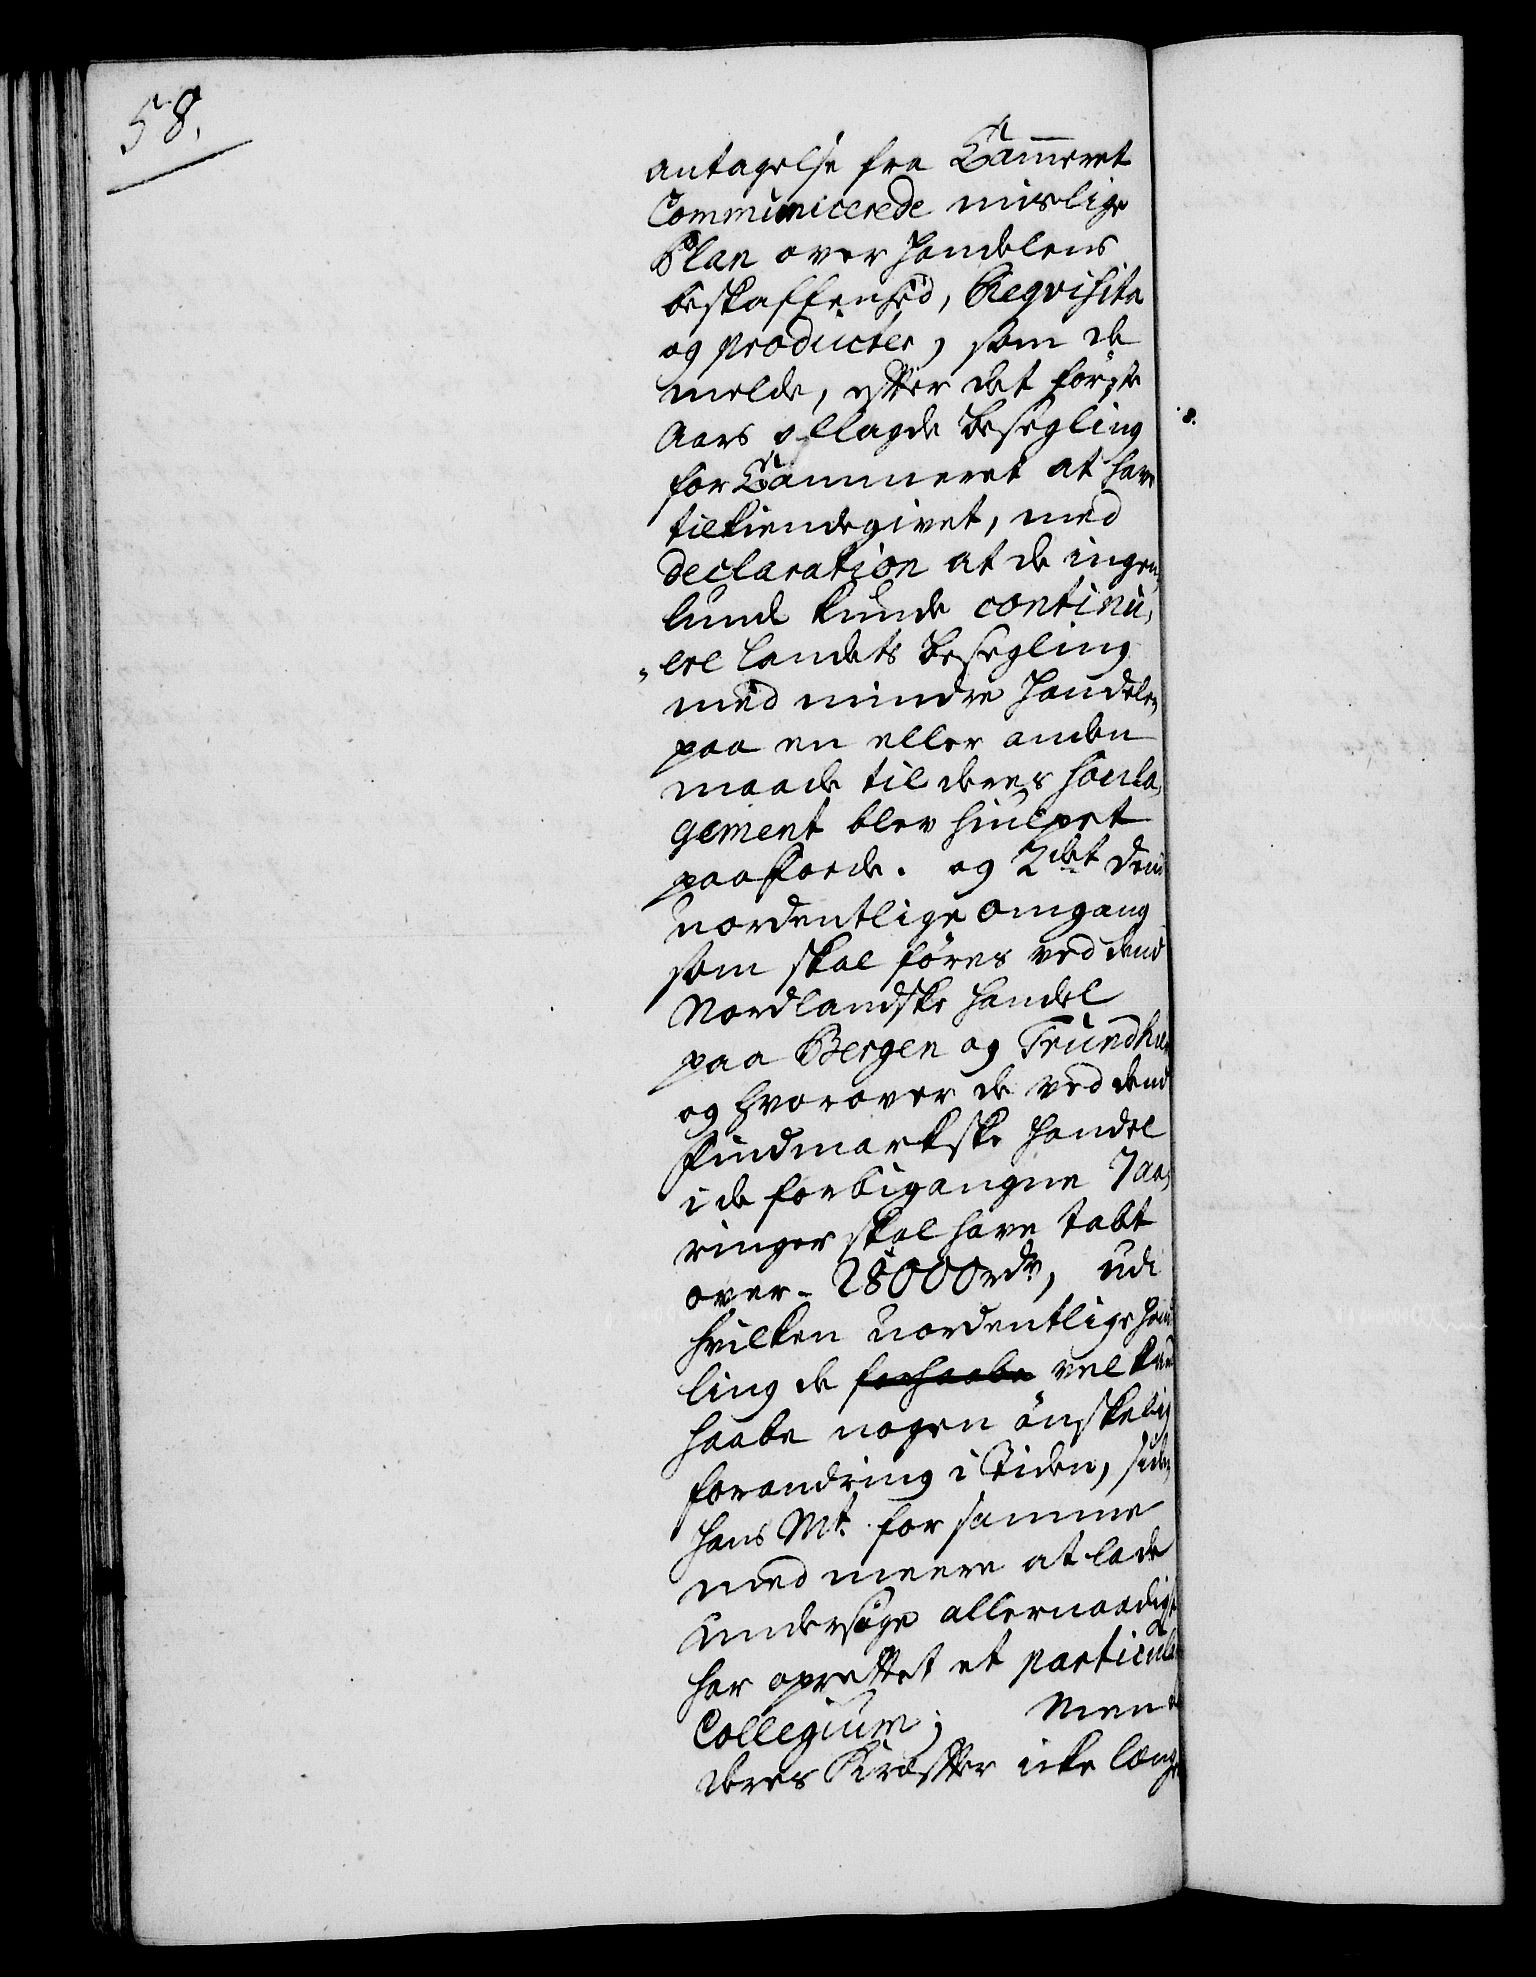 58.
antagelse fra Cammeret
Communicerede mislige
Plan over Handelens
beskaffenhed, Reqvisita
og producter, som de
melde, efter det første
Aars aflagde Besegling
for Cammeret at have
tilkiendegivet, med
declaration at de ingen,
lunde kunde continu,
ere Landets Besegling
med mindre Handelen
paa en eller anden
maade til deres Soula,
gement blev hiulpet
paafode. og 2det dend
uordentlige omgang
som skal føres ved dend
Nordlandske Handel
paa Bergen og Trundhæ
og hvorover de ved dend
Findmarkske Handel
i de forbigangne 7 aa,
ringer skal have tabt
over - 28000 rdr, udi
hvilken uordentlige Hand
ling de forhaabe vel kand
haabe nogen ønskelig
forandring i Tiden, siden
Hans Mt. for samme
med meere at lade
undersøge allernaadigst
har oprettet et particulær
Collegium; Men
deres Kræfter icke længe